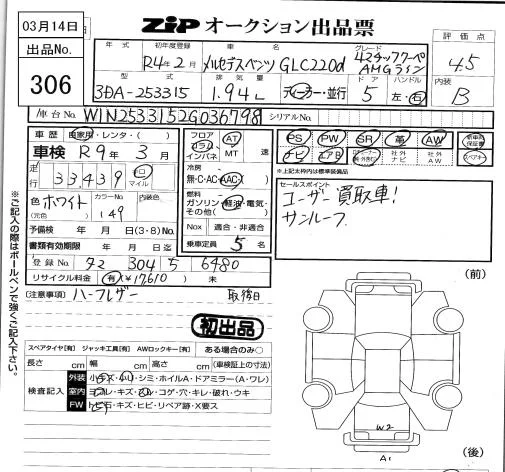 03月14日
出品No.
306
ZIP オークション出品票
年式 初年度登録 車名 グレード
R4年2月 メルセデスベンツ GLC220d 4マチッククーペ
AMGライン
評価点
4.5
型式 排気量 ドア ハンドル
3DA-253315 1.94L ディーラー・並行 5 左・右
内装
B
車台No. W1N2533152G036798 シリアルNo.
車歴 自家用・レンタ・( )
車検 R9年3月
走行 33,439 キロ マイル
色 ホワイト カラーNo. 内装色
(元色) 149
予備検 年 月 日(3・8)No.
書類有効期限 年 月 日迄
登録No. 304 6480
リサイクル料金 有(¥17610) 未
フロア AT
コラム
インパネ MT 速
冷房
無・C・AC・AAC
燃料
ガソリン・軽油・電気・
その他( )
Nox 適合・非適合
乗車定員 5名
PS PW SR 革 AW 新車時保証書
ナビ エアB 社外ナビ 社外AW スペアキー
*上記太枠内は標準装備品
セールスポイント
ユーザー買取車!
サンルーフ
(注意事項) ハーフレザー 取後日
初出品
スペアタイヤ[有] ジャッキ工具[有] AWロックキー[有] ある場合のみ○
長さ cm 幅 cm 高さ cm (車検証上の寸法)
検査記入
外装 小キズ・小凹・シミ・ホイルA・ドアミラー(A・ワレ)
室内 ヨゴレ・キズ・スレ・コゲ・穴・キレ・破れ・ウキ
FW トビ石・キズ・ヒビ・リペア跡・X要ス
(前)
W2
A1
(後)
※ご記入の際はボールペンで強くご記入下さい。